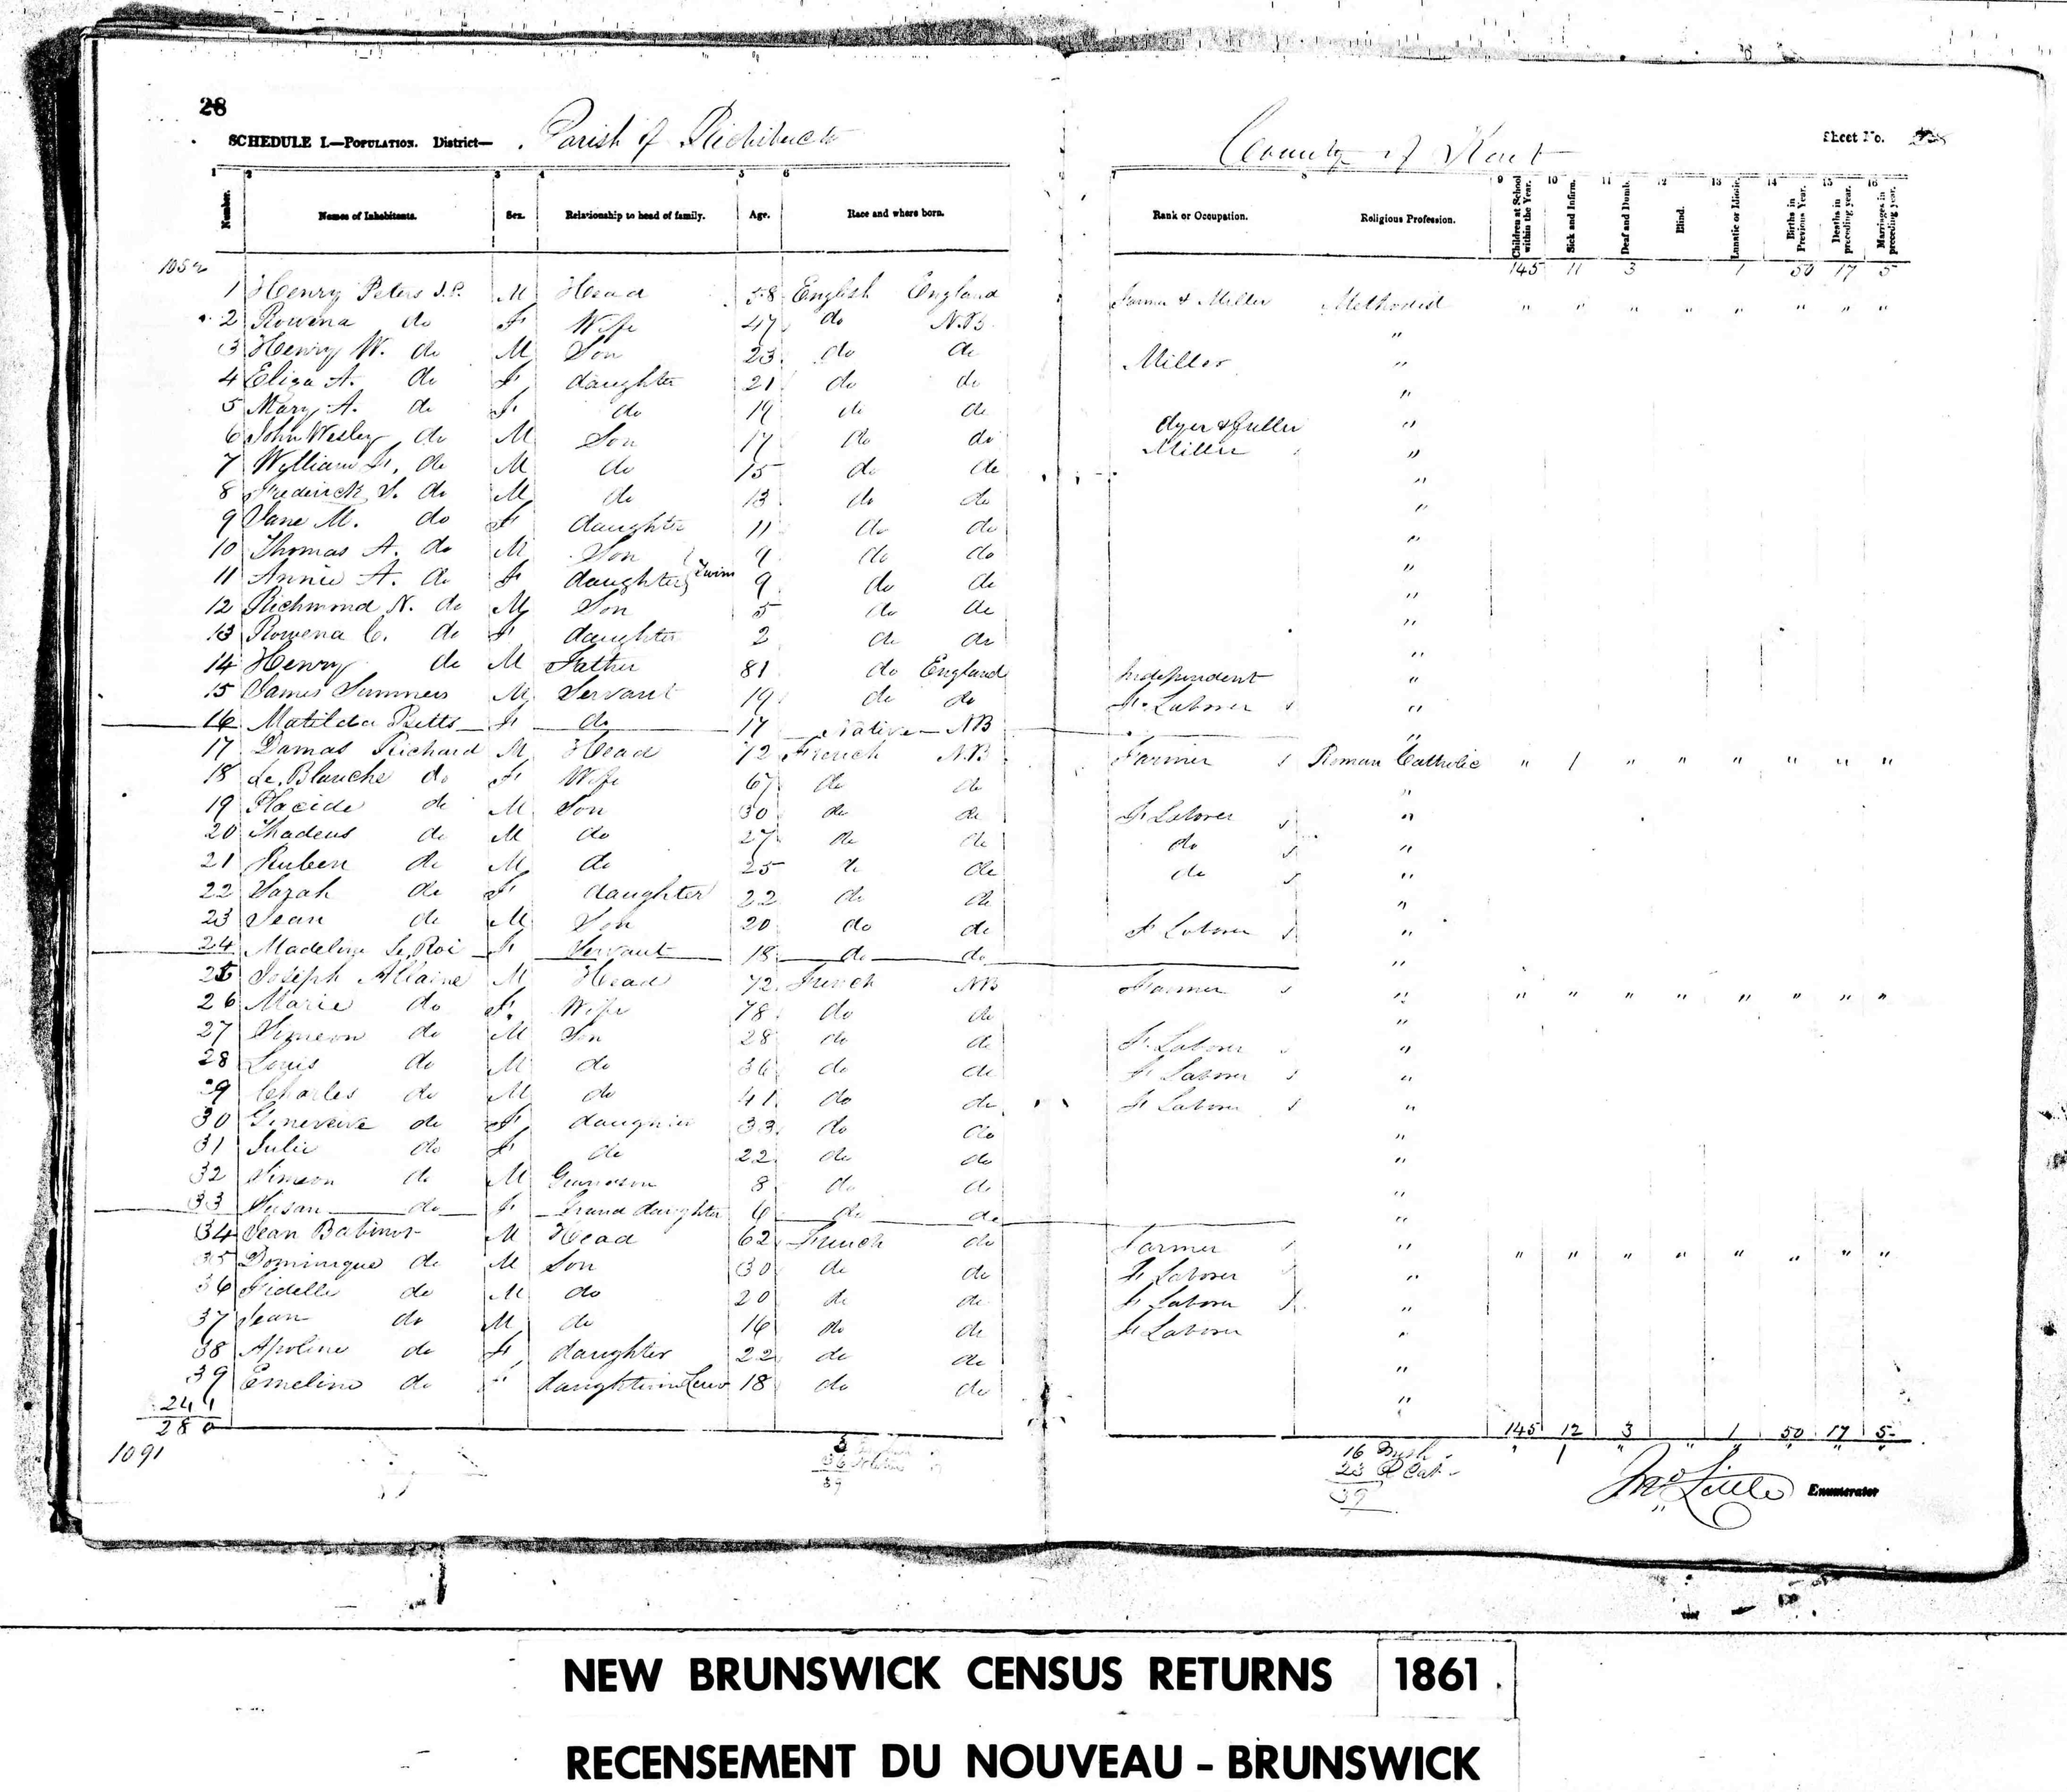 28
SCHEDULE I.—POPULATION. District— Parish of Richibucto County of Kent Sheet No. 28
1 2 3 4 5 6 7 8 9 10 11 12 13 14 15 16
Number. Names of Inhabitants. Sex. Relationship to head of family. Age. Race and where born. Rank or Occupation. Religious Profession. Children at School within the Year. Sick and Infirm. Deaf and Dumb. Blind. Lunatic or Idiotic. Births in Previous Year. Deaths in preceding year. Marriages in preceding year.
1052 145 11 3 1 50 17 5
1 Henry Peters J.P. M Head 58 English England Farmer & Miller Methodist " " " " " " " "
2 Rowena do F Wife 47 do N.B. "
3 Henry W. do M Son 23 do do Miller "
4 Eliza A. do F daughter 21 do do "
5 Mary A. do F do 19 do do "
6 John Wesley do M Son 17 do do dyer & fuller "
7 William F. do M do 15 do do Miller "
8 Frederick S. do M do 13 do do "
9 Jane M. do F daughter 11 do do "
10 Thomas A. do M Son 9 do do "
11 Annie A. do F daughter } Twins 9 do do "
12 Richmond N. do M Son 5 do do "
13 Rowena C. do F daughter 2 do do "
14 Henry do M Father 81 do England Independent "
15 James Summers M Servant 19 do do F. Laborer "
16 Matilda Betts F do 17 Native NB "
17 Damas Richard M Head 72 French N.B Farmer Roman Catholic " 1 " " " " " "
18 Le Blanche do F Wife 67 do do "
19 Placide do M Son 30 do do F Laborer "
20 Thadeus do M do 27 do do do "
21 Ruben do M do 25 do do do "
22 Sarah do F daughter 22 do do "
23 Jean do M Son 20 do do F Laborer "
24 Madeline Le Roi F Servant 18 do do "
25 Joseph Allaine M Head 72 French NB Farmer " " " " " " " " "
26 Marie do F. Wife 78 do do "
27 Simeon do M Son 28 do do F. Laborer "
28 Louis do M do 36 do do F Laborer "
29 Charles do M do 41 do do F Laborer "
30 Geneveive do F daughter 33 do do "
31 Julie do F do 22 do do "
32 Simeon do M Grandson 8 do do "
33 Susan do F Grand daughter 6 do do "
34 Jean Babinot M Head 62 French do Farmer " " " " " " " " "
35 Dominique do M Son 30 do do F Laborer "
36 Fidelle do M do 20 do do F Laborer "
37 Jean do M do 16 do do F Laborer "
38 Apoline do F daughter 22 do do "
39 Emeline do " daughter in Law 18 do do "
241
280
1091
145 12 3 " 1 50 17 5
3
36
39
16
23 R Cat
39
Jno Little Enumerator
NEW BRUNSWICK CENSUS RETURNS 1861
RECENSEMENT DU NOUVEAU - BRUNSWICK